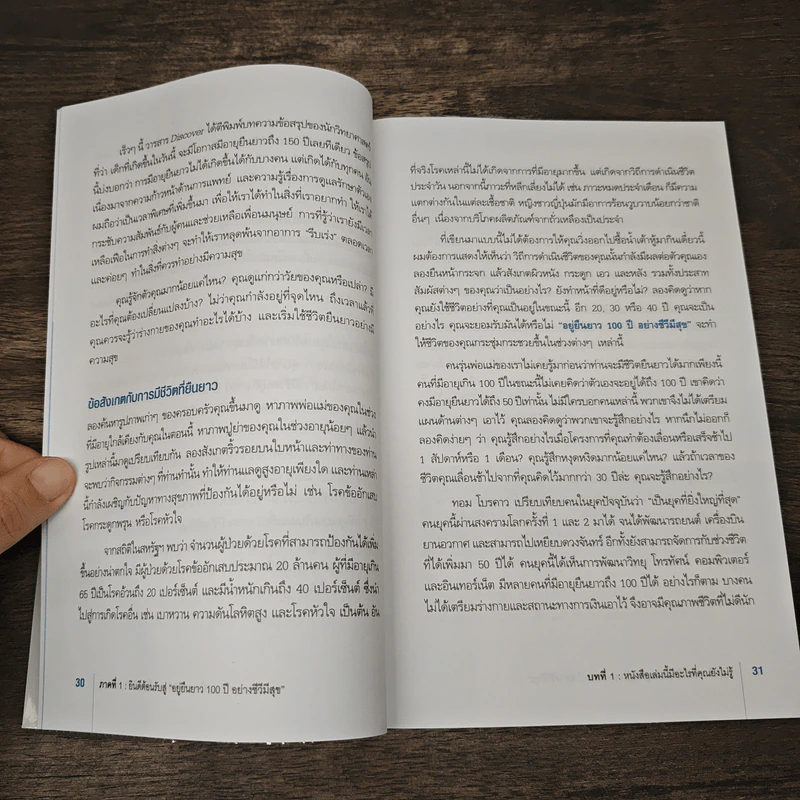 เร็วๆ นี้ วารสาร Discover ได้ตีพิมพ์บทความข้อสรุปของนักวิทยาศาสตร์
ที่ว่า เด็กที่เกิดขึ้นในวันนี้ จะมีโอกาสมีอายุยืนยาวถึง 150 ปีเลยทีเดียว ข้อสรุป
นี้บ่งบอกว่า การมีอายุยืนยาวไม่ได้เกิดขึ้นได้กับบางคน แต่เกิดได้กับทุกคน อัน
เนื่องมาจากความก้าวหน้าด้านการแพทย์ และความรู้เรื่องการดูแลรักษาตัวเอง
ผมถือว่าเป็นเวลาพิเศษที่เพิ่มขึ้นมา เพื่อให้เราได้ทำในสิ่งที่เราอยากทำ ให้เรา
กระชับความสัมพันธ์กับผู้คนและช่วยเหลือเพื่อนมนุษย์ การที่รู้ว่าเรายังมีเวลา
เหลือเฟือในการทำสิ่งต่างๆ จะทำให้เราหลุดพ้นจากอาการ "รีบเร่ง" ตลอดเวลา
และค่อยๆ ทำในสิ่งที่ควรทำอย่างมีความสุข
คุณรู้จักตัวคุณมากน้อยแค่ไหน? คุณดูแก่กว่าวัยของคุณหรือเปล่า? มี
อะไรที่คุณต้องเปลี่ยนแปลงบ้าง? ไม่ว่าคุณกำลังอยู่ที่จุดไหน ถึงเวลาแล้วที่
คุณควรจะรู้ว่าร่างกายของคุณทำอะไรได้บ้าง และเริ่มใช้ชีวิตยืนยาวอย่างมี
ความสุข
ข้อสังเกตกับการมีชีวิตที่ยืนยาว
ลองค้นหารูปภาพเก่าๆ ของครอบครัวคุณขึ้นมาดู หาภาพพ่อแม่ของคุณในช่วง
ที่มีอายุใกล้เคียงกับคุณในตอนนี้ หาภาพปู่ย่าของคุณในช่วงอายุน้อยๆ แล้วนำ
รูปเหล่านี้มาดูเปรียบเทียบกัน ลองสังเกตริ้วรอยบนใบหน้าและท่าทางของท่าน
จะพบว่ากิจกรรมต่างๆ ที่ท่านทำนั้น ทำให้ท่านแลดูสูงอายุเพียงใด และท่านเหล่า
นี้กำลังเผชิญกับปัญหาทางสุขภาพที่ป้องกันได้อยู่หรือไม่ เช่น โรคข้ออักเสบ
โรคกระดูกพรุน หรือโรคหัวใจ
จากสถิติในสหรัฐฯ พบว่า จำนวนผู้ป่วยด้วยโรคที่สามารถป้องกันได้เพิ่ม
ขึ้นอย่างน่าตกใจ มีผู้ป่วยด้วยโรคข้ออักเสบประมาณ 20 ล้านคน ผู้ที่มีอายุเกิน
65 ปีเป็นโรคอ้วนถึง 20 เปอร์เซ็นต์ และมีน้ำหนักเกินถึง 40 เปอร์เซ็นต์ ซึ่งนำ
ไปสู่การเกิดโรคอื่น เช่น เบาหวาน ความดันโลหิตสูง และโรคหัวใจ เป็นต้น อัน
30 ภาคที่ 1 : ยินดีต้อนรับสู่ "อยู่ยืนยาว 100 ปี อย่างชีวีมีสุข"
ที่จริงโรคเหล่านี้ไม่ได้เกิดจากการที่มีอายุมากขึ้น แต่เกิดจากวิถีการดำเนินชีวิต
ประจำวัน นอกจากนี้ภาวะที่หลีกเลี่ยงไม่ได้ เช่น ภาวะหมดประจำเดือน ก็มีความ
แตกต่างกันในแต่ละเชื้อชาติ หญิงชาวญี่ปุ่นมักมีอาการร้อนวูบวาบน้อยกว่าชาติ
อื่นๆ เนื่องจากบริโภคผลิตภัณฑ์จากถั่วเหลืองเป็นประจำ
ที่เขียนมาแบบนี้ไม่ได้ต้องการให้คุณวิ่งออกไปซื้อน้ำเต้าหู้มากินเดี๋ยวนี้
ผมต้องการแสดงให้เห็นว่า วิถีการดำเนินชีวิตของคุณนั้นกำลังมีผลต่อตัวคุณเอง
ลองยืนหน้ากระจก แล้วสังเกตผิวหนัง กระดูก เอว และหลัง รวมทั้งประสาท
สัมผัสต่างๆ ของคุณว่าเป็นอย่างไร? ยังทำหน้าที่ดีอยู่หรือไม่? ลองคิดดูว่าหาก
คุณยังใช้ชีวิตอย่างที่คุณเป็นอยู่ในขณะนี้ อีก 20, 30 หรือ 40 ปี คุณจะเป็น
อย่างไร คุณจะยอมรับมันได้หรือไม่ "อยู่ยืนยาว 100 ปี อย่างชีวีมีสุข" จะทำ
ให้ชีวิตของคุณกระชุ่มกระชวยขึ้นในช่วงต่างๆ เหล่านี้
คนรุ่นพ่อแม่ของเราไม่เคยรู้มาก่อนว่าท่านจะมีชีวิตยืนยาวได้มากเพียงนี้
คนที่มีอายุเกิน 100 ปีในขณะนี้ไม่เคยคิดว่าตัวเองจะอยู่ได้ถึง 100 ปี เขาคิดว่า
คงมีอายุยืนยาวได้ถึง 50 ปีเท่านั้น ไม่มีใครบอกคนเหล่านี้ พวกเขาจึงไม่ได้เตรียม
แผนด้านต่างๆ เอาไว้ คุณลองคิดดูว่าพวกเขาจะรู้สึกอย่างไร หากนึกไม่ออกก็
ลองคิดง่ายๆ ว่า คุณรู้สึกอย่างไรเมื่อโครงการที่คุณทำต้องเลื่อนหรือเสร็จช้าไป
1 สัปดาห์หรือ 1 เดือน? คุณรู้สึกหงุดหงิดมากน้อยแค่ไหน? แล้วถ้าเวลาของ
ชีวิตคุณเลื่อนช้าไปจากที่คุณคิดไว้มากกว่า 30 ปีล่ะ คุณจะรู้สึกอย่างไร?
ทอม โบรคาว เปรียบเทียบคนในยุคปัจจุบันว่า "เป็นยุคที่ยิ่งใหญ่ที่สุด"
คนยุคนี้ผ่านสงครามโลกครั้งที่ 1 และ 2 มาได้ จนได้พัฒนารถยนต์ เครื่องบิน
ยานอวกาศ และสามารถไปเหยียบดวงจันทร์ อีกทั้งยังสามารถจัดการกับช่วงชีวิต
ที่ได้เพิ่มมา 50 ปีได้ คนยุคนี้ได้เห็นการพัฒนาวิทยุ โทรทัศน์ คอมพิวเตอร์
และอินเทอร์เน็ต มีหลายคนที่มีอายุยืนยาวถึง 100 ปีได้ อย่างไรก็ตาม บางคน
ไม่ได้เตรียมร่างกายและสถานะทางการเงินเอาไว้ จึงอาจมีคุณภาพชีวิตที่ไม่ดีนัก
บทที่ 1 : หนังสือเล่มนี้มีอะไรที่คุณยังไม่รู้ 31